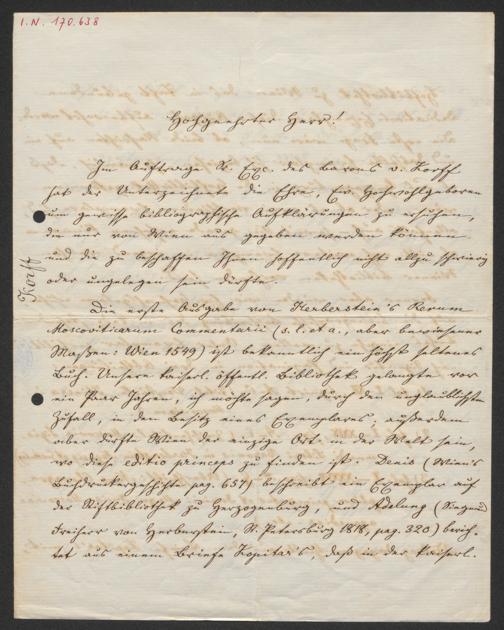 I.N. 170.638
Hochgeehrter Herr!
Im Auftrage Sr. Exc. des Barons v. Korff
hat der Unterzeichnete die Ehre, Ew. Hochwohlgeboren
um gewisse bibliographische Aufklärungen zu ersuchen,
die nur von Wien aus gegeben werden können
und die zu beschaffen Ihnen hoffentlich nicht allzu schwierig
oder ungelegen sein dürfte.
Korff
Die erste Ausgabe von Herberstein's Rerum
Moscoviticarum Commentarii (s. l. et a., aber bewiesener
Maßen: Wien 1549) ist bekanntlich ein höchst seltenes
Buch. Unsere kaiserl. öffentl. Bibliothek gelangte vor
ein Paar Jahren, ich möchte sagen, durch den unglaublichsten
Zufall, in den Besitz eines Exemplares; außerdem
aber dürfte Wien der einzige Ort in der Welt sein,
wo diese editio princeps zu finden ist. Denis (Wien's
Buchdruckergeschichte pag. 651) beschreibt ein Exemplar auf
der Stiftbibliothek zu Herzogenburg, und Adelung (Siegmund
Freiherr von Herberstein, St. Petersburg 1818, pag. 320) berich-
tet aus einem Briefe Kopitar's, daß in der kaiserl.